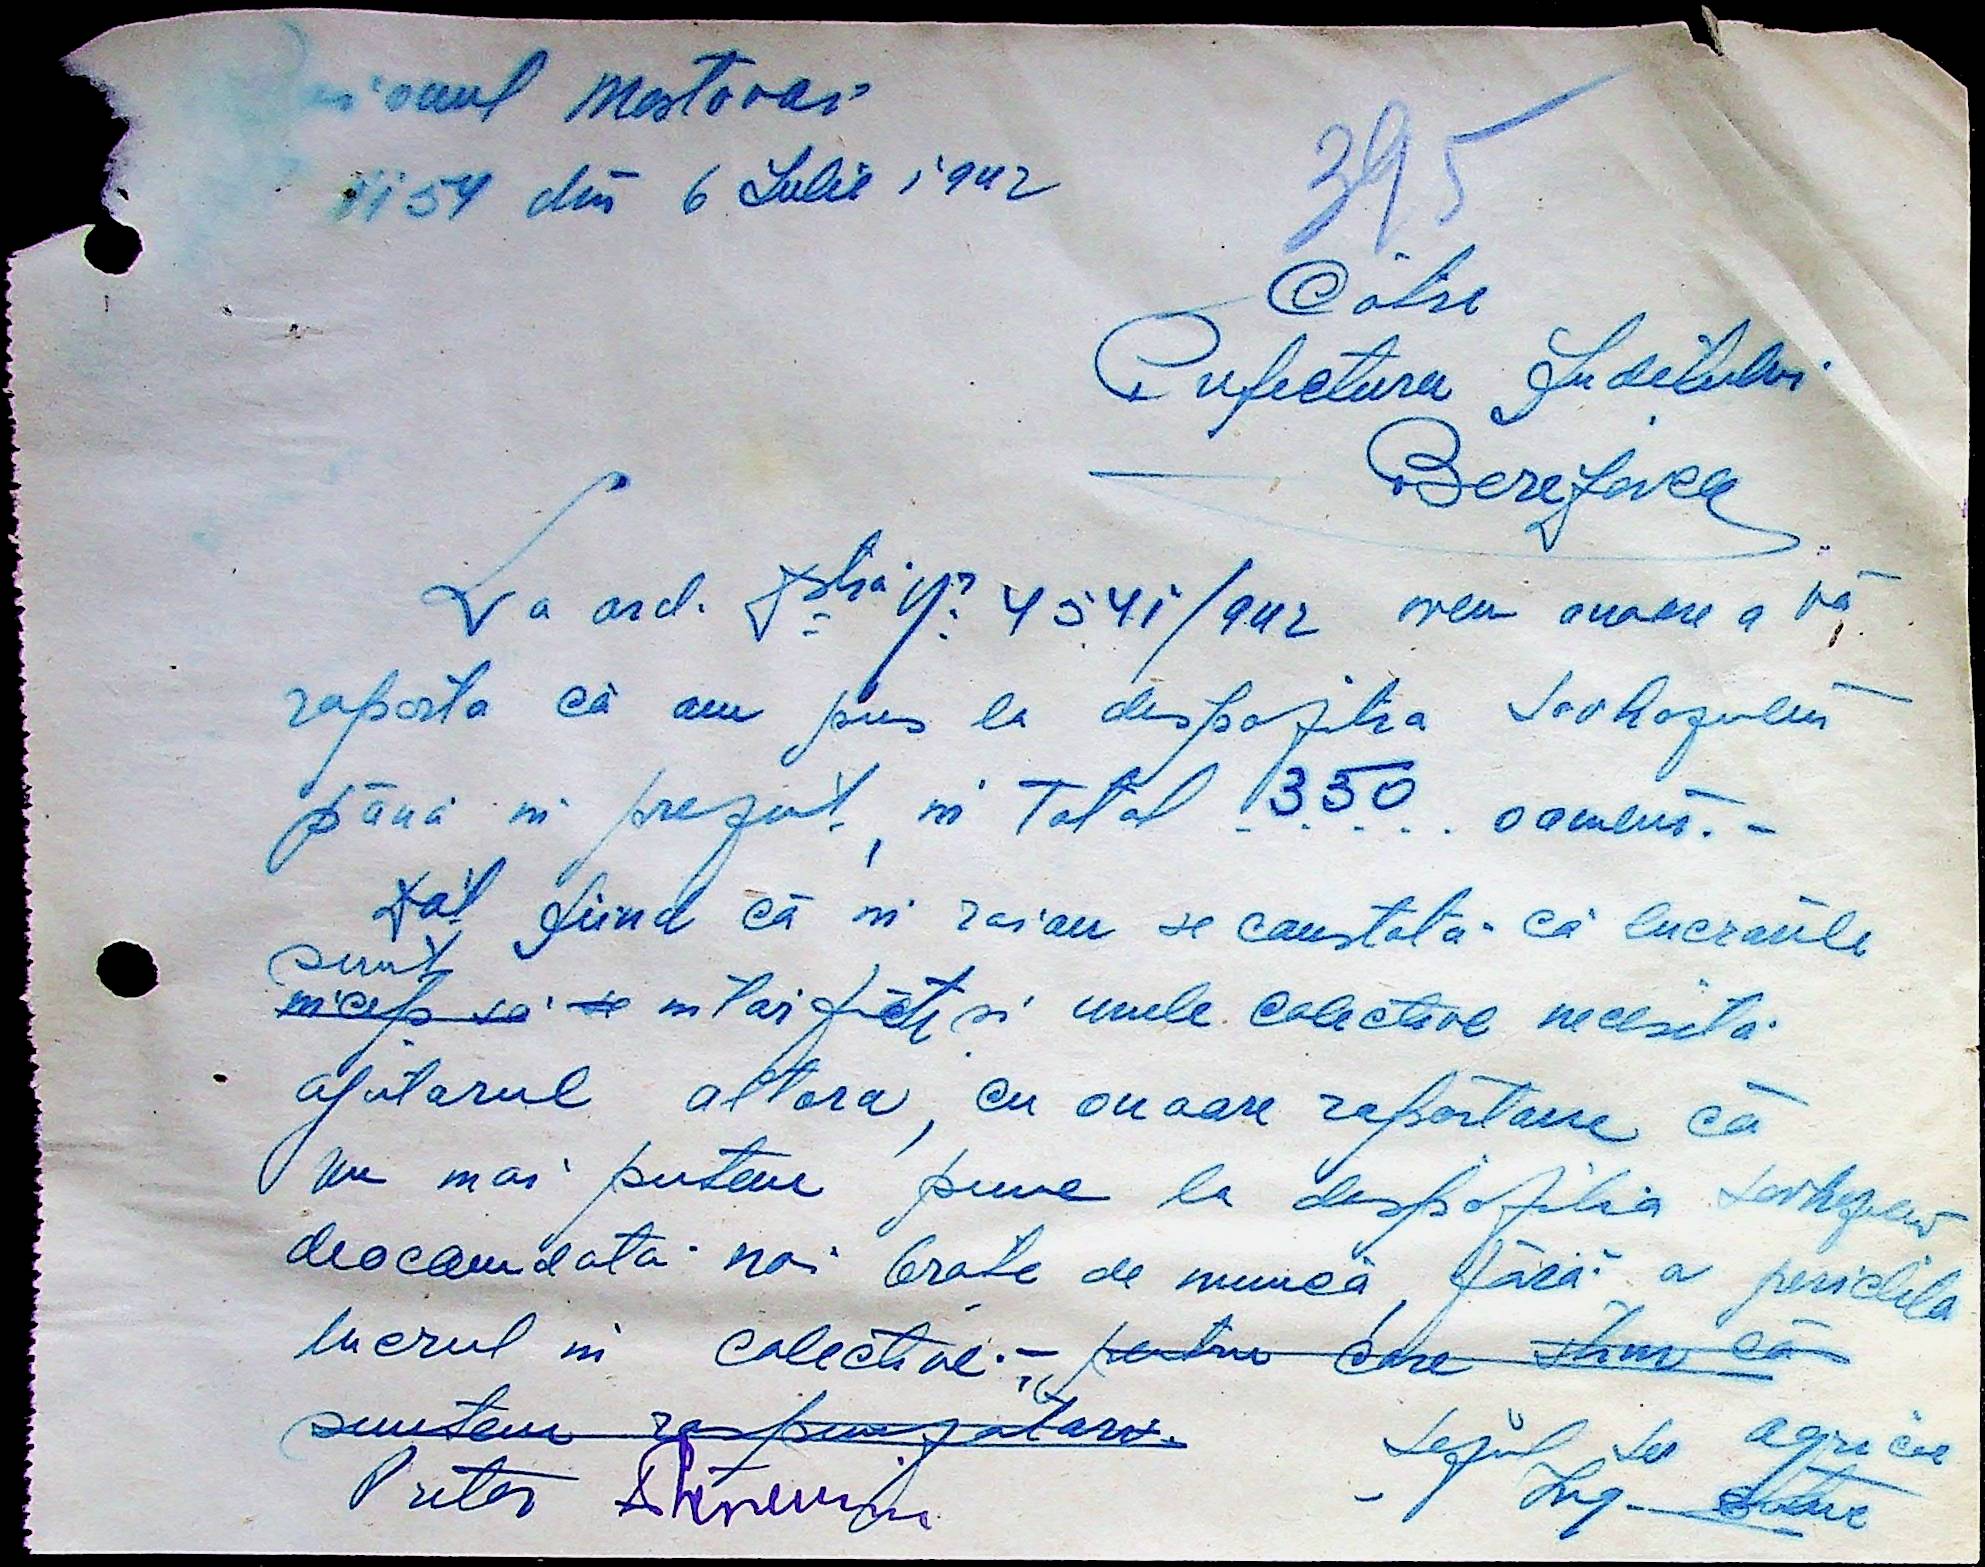 Raionul Mostovoi
1154 din 6 Iulie 1942
395
Către
Prefectura Judetului
Berezovca
La ord. Dstră No. 4541/942 avem onoare a vă
raporta că am pus la despoziția sovhozului
până in prezent, in total 350 oameni. -
Dat fiind că in raion se constată că lucrările
sunt
incep să se intarzicte si unele colective necesită
ajutorul altora, cu onoare raportăm că
nu mai putem pune la despoziția sovhozului
deocamdată noi brațe de muncă, fără a periclita
lucrul in colective. - pentru care stim că
suntem raspunzatori.
Pretor
Șeful ser agricol
Ing.